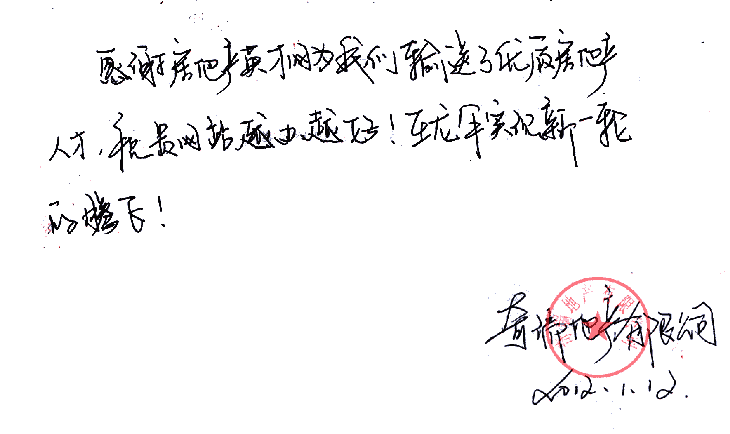 感谢房地产英才网为我们输送了优质房地产
人才，祝贵网站越办越好！在龙年实现新一轮
的腾飞！
奇瑞地产有限公司
2012.1.12.